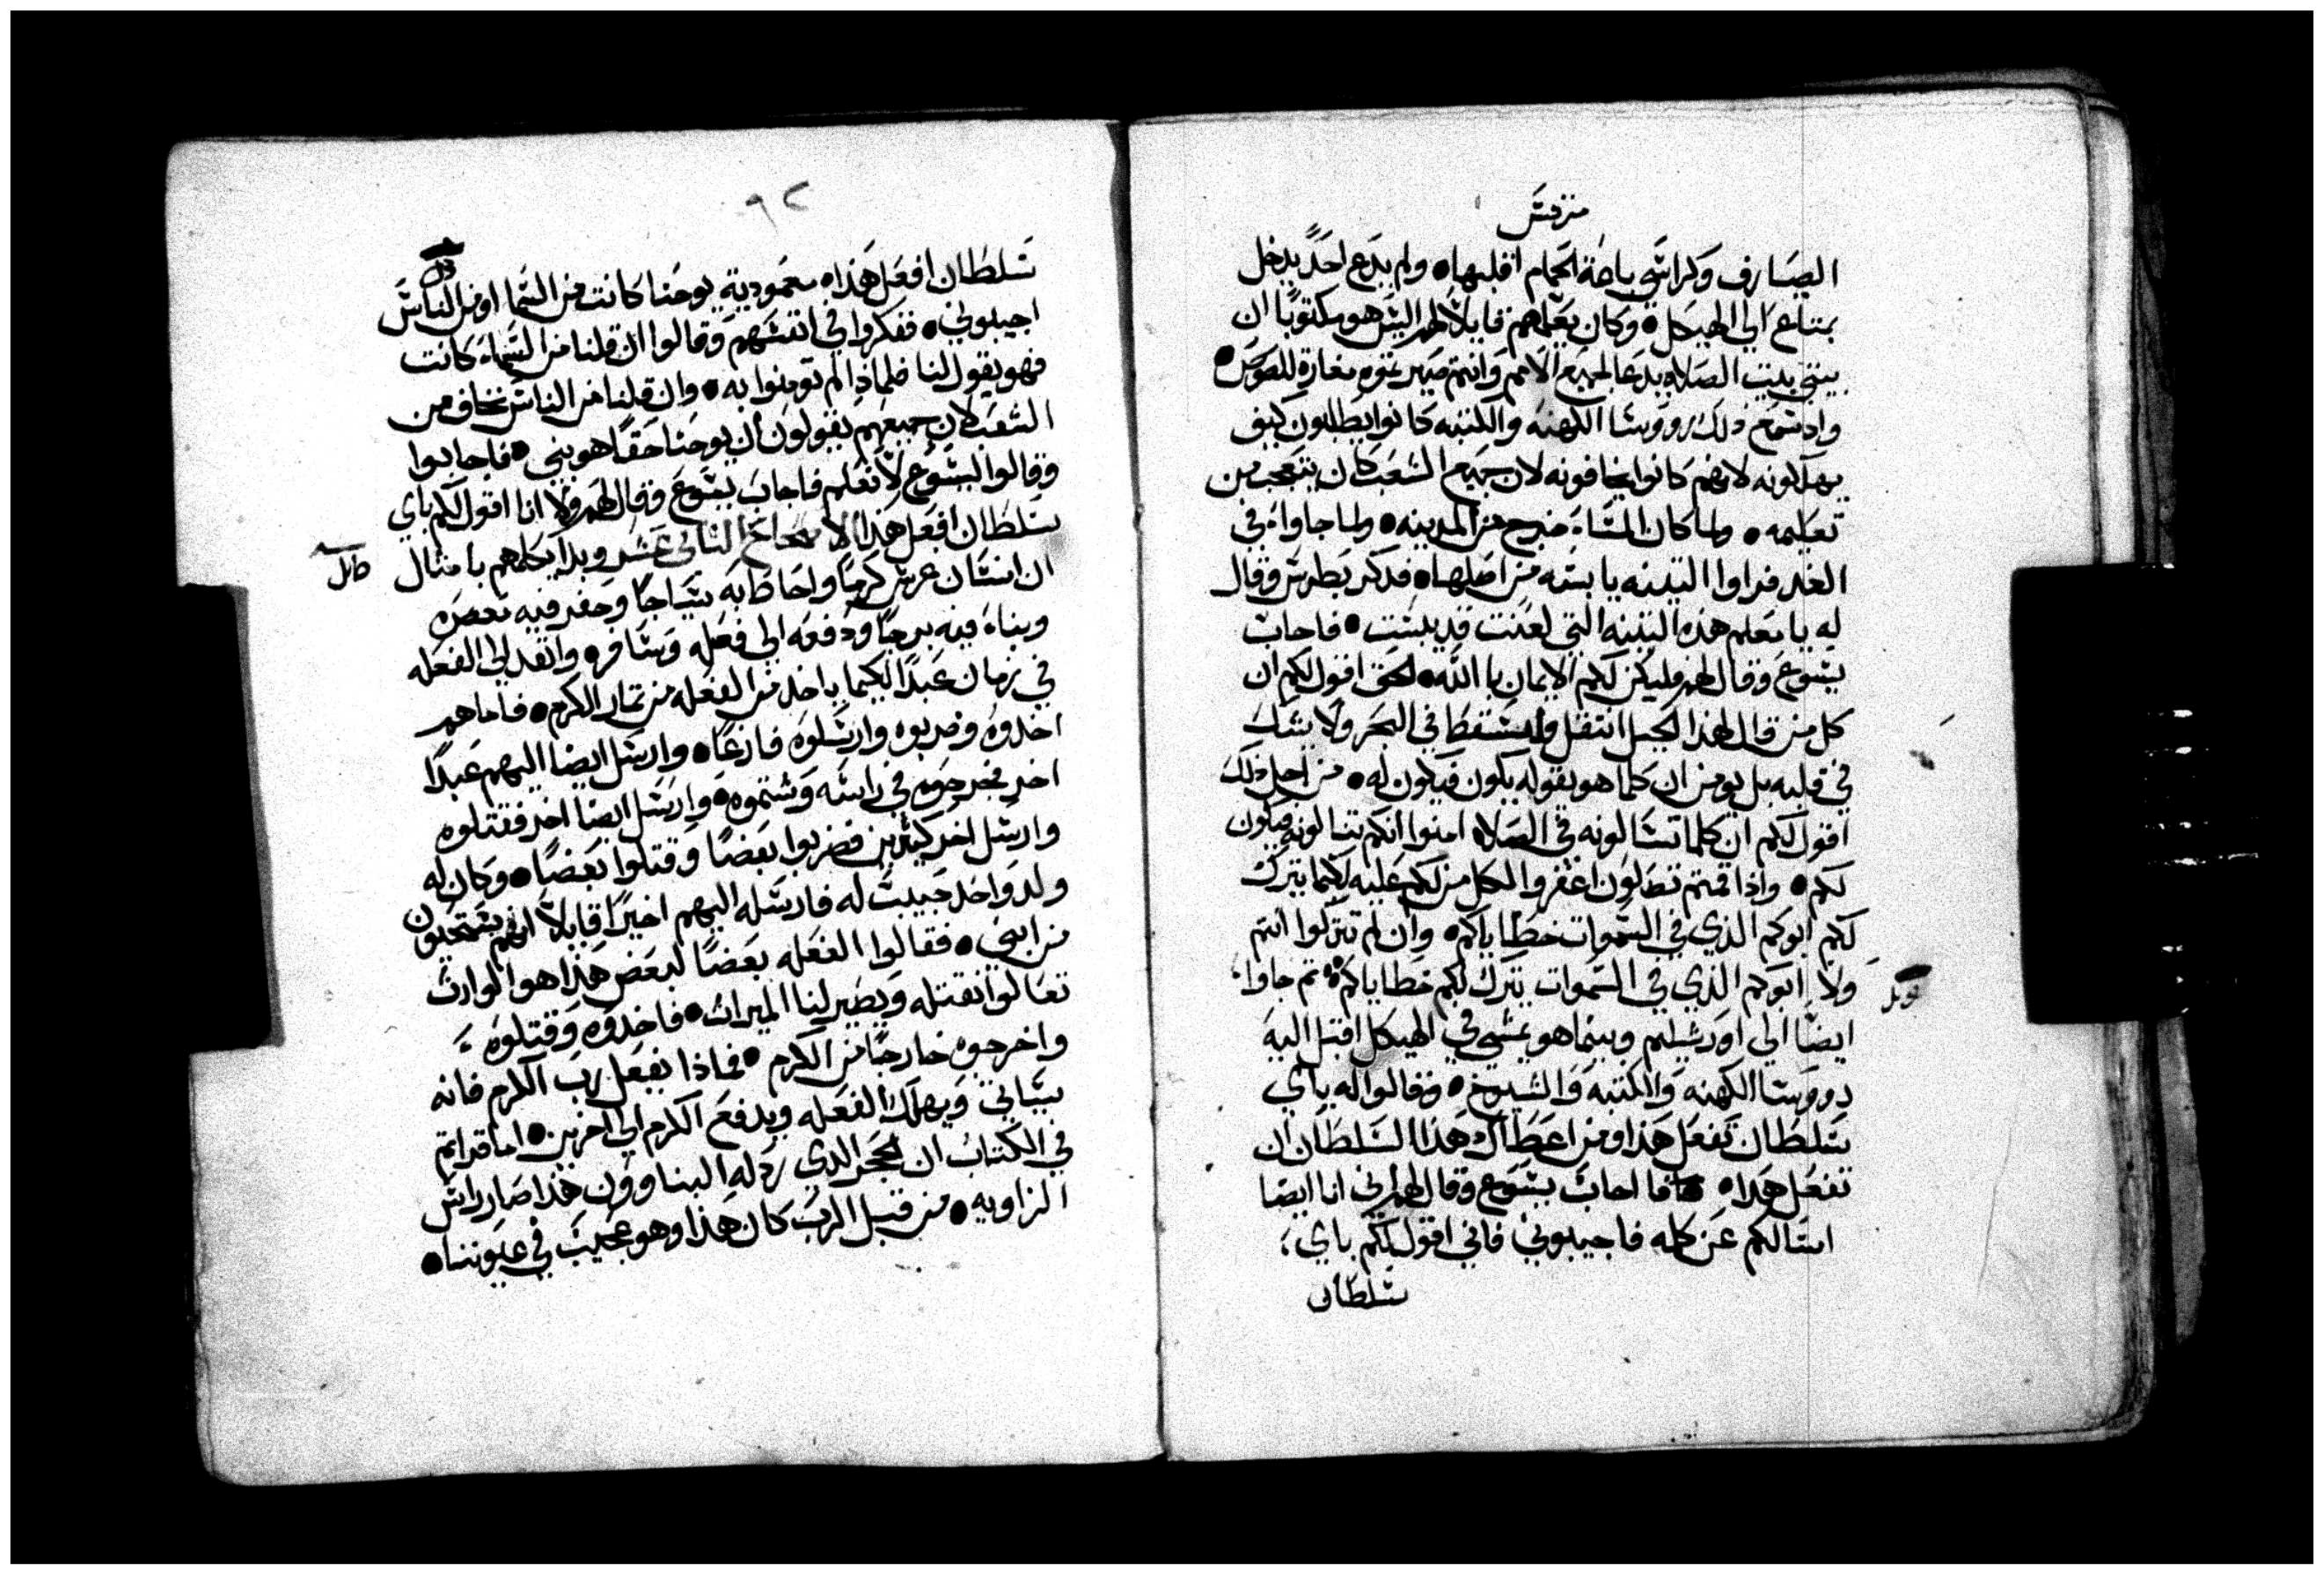 مزقس
الصيارف وكراسي باعة الحمام اقلبها • ولم يدع احدً يدخل
بمتاع الي الهيكل • وكان يعلمهم قايلاً لهم اليس هو مكتوبًا ان
بيتي بيت الصلاه يدعا لجميع الامم وانتم صيرتموه مغارة للصوص •
واد سمع ذلك رووسا الكهنه والكتبه كانوا يطلبون كيف
يهلكونه لانهم كانوا يخافونه لان جميع الشعب كان يتعجب من
تعليمه • ولما كان المساء خرج من المدينه • ولما جاواء في
الغد فراوا التينه يابسه من اصلها • فدكر بطرس وقال
له يا معلم هذه التينه التي لعنت قد يبست • فاجاب
يسوع وقال لهم فليكن لكم الايمان باالله • الحق اقول لكم ان
كل من قال لهذا الجبل انتقل واسقط في البحر ولا يشك
في قلبه بل يومن ان كلما هو يقوله يكون فيكون له • من اجل ذلك
اقول لكم ان كلما تسالونه في الصلاه امنوا انكم تنالونه فيكون
لكم • واذا قمتم تصلون اغفروا لكل من لكم عليه لكيما يترك
لكم ابوكم الذي في السموات خطاياكم • وان لم تتركوا انتم
ولا ابوكم الذي في السموات يترك لكم خطاياكم • ثم جاوا
ايضًا الي اورشليم وبينما هو يمشي في الهيكل اقبل اليه
رووسا الكهنه والكتبه والشيوخ • وقالوا له باي
سلطان تفعل هذا ومن اعطاك هذا السلطان ان
تفعل هذا • فاجاب يسوع وقال لهم اني انا ايضا
اسالكم عن كلمه فاجيبوني فاني اقول لكم باي
سلطان
٩٢
سلطان افعل هذا • معمودية يوحنا كانت من السما او من الناس
اجيبوني • ففكروا في انفسهم وقالوا ان قلنا من السماء كانت
فهو يقول لنا فلماذا لم تومنوا به • وان قلنا من الناس نخاف من
الشعب لان جميعهم يقولون ان يوحنا حقًا هو نبي • فاجابوا
وقالوا ليسوع لا نعلم فاجاب يسوع وقال لهم ولا انا اقول لكم باي
سلطان افعل هذا الاصحاح الثاني عشر وبدا يكلمهم بامثال
ان انسان غرس كرمًا واحاط به سياجًا وحفر فيه معصره
وبناه فيه برجًا ودفعه الي فعله وسافر • وانفد الي الفعله
في زمان عبدًا لكيما ياخد من الفعله من تمار الكرم • فاما هم
اخدوه وضربوه وارسلوه فارغًا • وارسل ايضا اليهم عبدًا
اخر فجرحوه في راسه وشتموه • وارسل ايضا اخر فقتلوه
وارسل اخر كثيرين فضربوا بعضًا وقتلوا بعضًا • وكان له
ولد واحد حبيب له فارسله اليهم اخيرًا قايلاً انهم يستحيون
من ابني • فقالوا الفعله بعضًا لبعض هذا هو الوارث
تعالوا نقتله ويصير لنا الميراث • فاخدوه وقتلوه
واخرجوه خارجًا من الكرم • فماذا يفعل رب الكرم فانه
سياتي ويهلك الفعله ويدفع الكرم الي اخرين • اما قراتم
في الكتاب ان الحجر الدي ردله البناوون هذا صار راس
الزاويه • من قبل الرب كان هذا وهو عجيب في عيوننا •